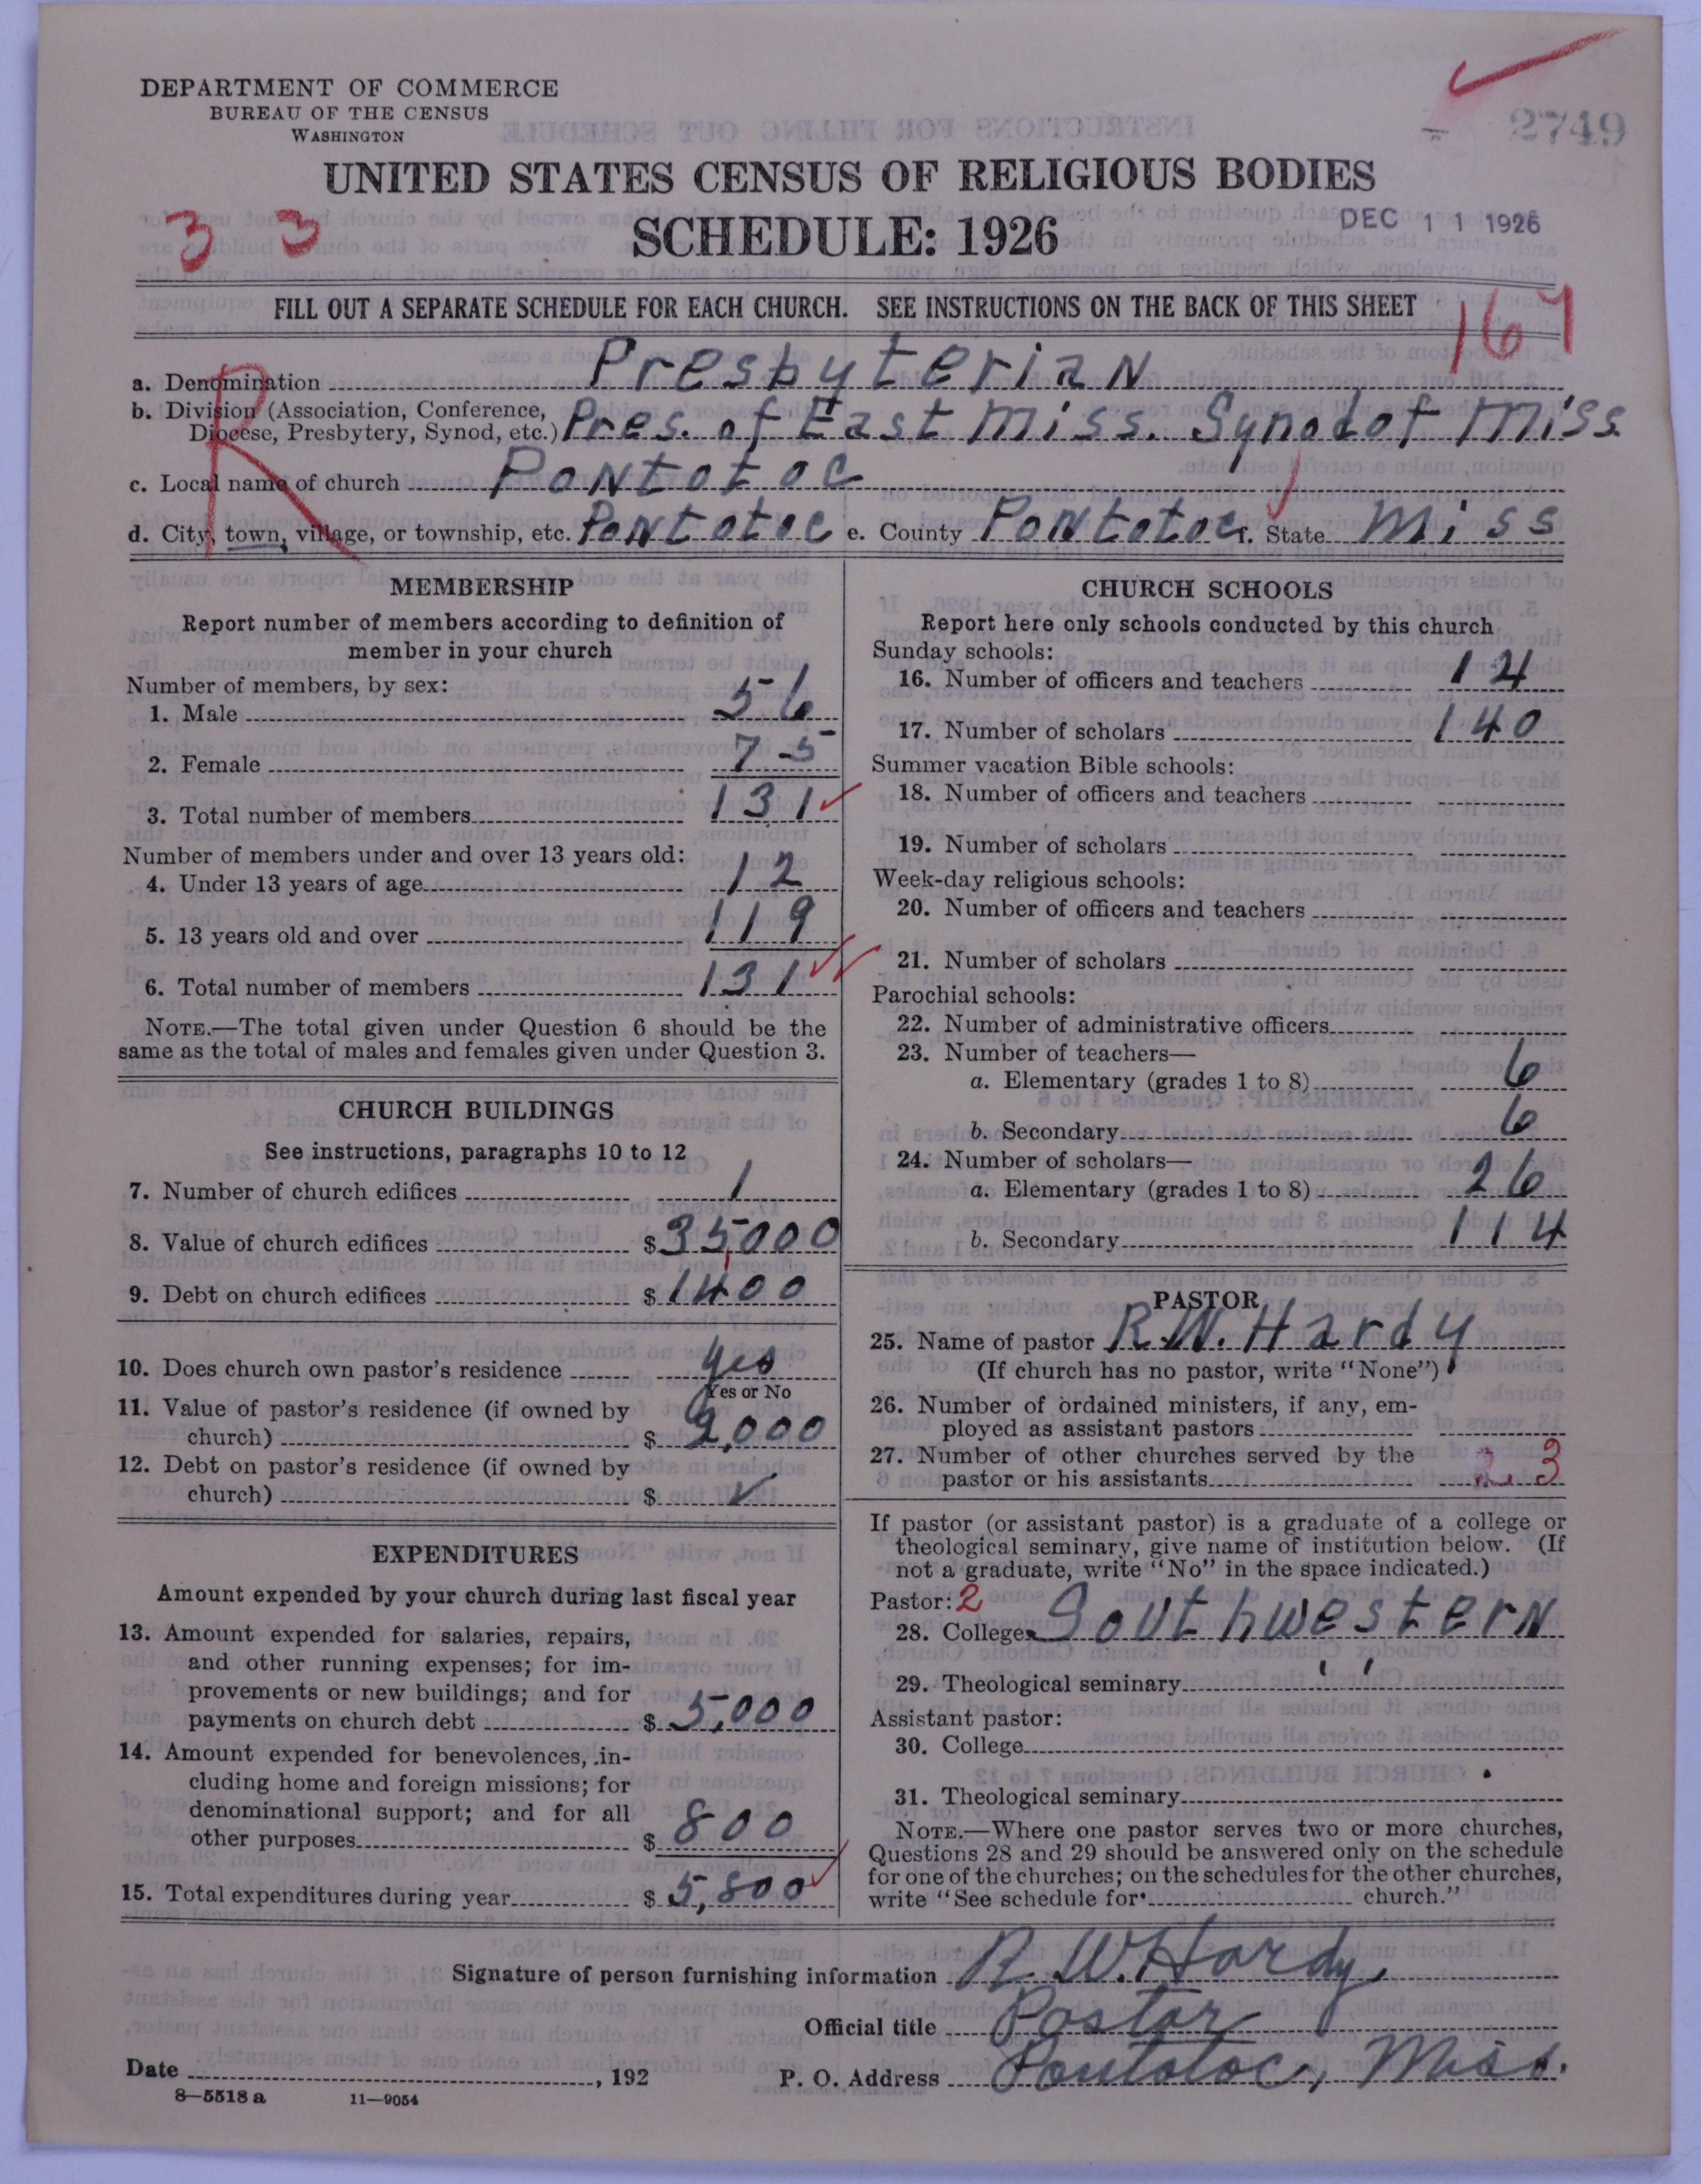 DEPARTMENT OF COMMERCE
BUREAU OF THE CENSUS
WASHINGTON
2749
UNITED STATES CENSUS OF RELIGIOUS BODIES
SCHEDULE: 1926
DEC 11 1926
3 3
FILL OUT A SEPARATE SCHEDULE FOR EACH CHURCH. SEE INSTRUCTIONS ON THE BACK OF THIS SHEET
167
R
a. Denomination Presbyterian
b. Division (Association, Conference, Diocese, Presbytery, Synod, etc.) Pres. of East Miss. Synod of Miss.
c. Local name of church Pontotoc
d. City, town, village, or township, etc. Pontotoc e. County Pontotoc f. State Miss
MEMBERSHIP
Report number of members according to definition of
member in your church
Number of members, by sex:
1. Male 56
2. Female 75
3. Total number of members 131
Number of members under and over 13 years old:
4. Under 13 years of age 12
5. 13 years old and over 119
6. Total number of members 131
NOTE.—The total given under Question 6 should be the
same as the total of males and females given under Question 3.
CHURCH BUILDINGS
See instructions, paragraphs 10 to 12
7. Number of church edifices 1
8. Value of church edifices $ 35,000
9. Debt on church edifices $ 1400
10. Does church own pastor's residence yes
Yes or No
11. Value of pastor's residence (if owned by
church) $ 9,000
12. Debt on pastor's residence (if owned by
church) $ ✓
EXPENDITURES
Amount expended by your church during last fiscal year
13. Amount expended for salaries, repairs,
and other running expenses; for im-
provements or new buildings; and for
payments on church debt $ 5,000
14. Amount expended for benevolences, in-
cluding home and foreign missions; for
denominational support; and for all
other purposes $ 800
15. Total expenditures during year $ 5,800
CHURCH SCHOOLS
Report here only schools conducted by this church
Sunday schools:
16. Number of officers and teachers 12
17. Number of scholars 140
Summer vacation Bible schools:
18. Number of officers and teachers
19. Number of scholars
Week-day religious schools:
20. Number of officers and teachers
21. Number of scholars
Parochial schools:
22. Number of administrative officers
23. Number of teachers—
a. Elementary (grades 1 to 8) 6
b. Secondary 6
24. Number of scholars—
a. Elementary (grades 1 to 8) 26
b. Secondary 114
PASTOR
25. Name of pastor R.W. Hardy
(If church has no pastor, write "None")
26. Number of ordained ministers, if any, em-
ployed as assistant pastors
27. Number of other churches served by the
pastor or his assistants 3
If pastor (or assistant pastor) is a graduate of a college or
theological seminary, give name of institution below. (If
not a graduate, write "No" in the space indicated.)
Pastor: 2
28. College Southwestern
29. Theological seminary ' '
Assistant pastor:
30. College
31. Theological seminary
NOTE.—Where one pastor serves two or more churches,
Questions 28 and 29 should be answered only on the schedule
for one of the churches; on the schedules for the other churches,
write "See schedule for church."
Signature of person furnishing information R. W. Hardy
Official title Pastor
Date , 192 P. O. Address Pontotoc, Miss.
8—5518 a 11—9054